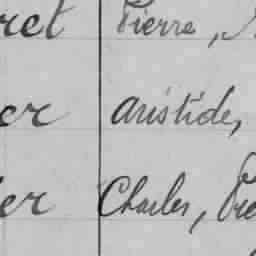 ret Pierre,
er Aristide,
er Charles,